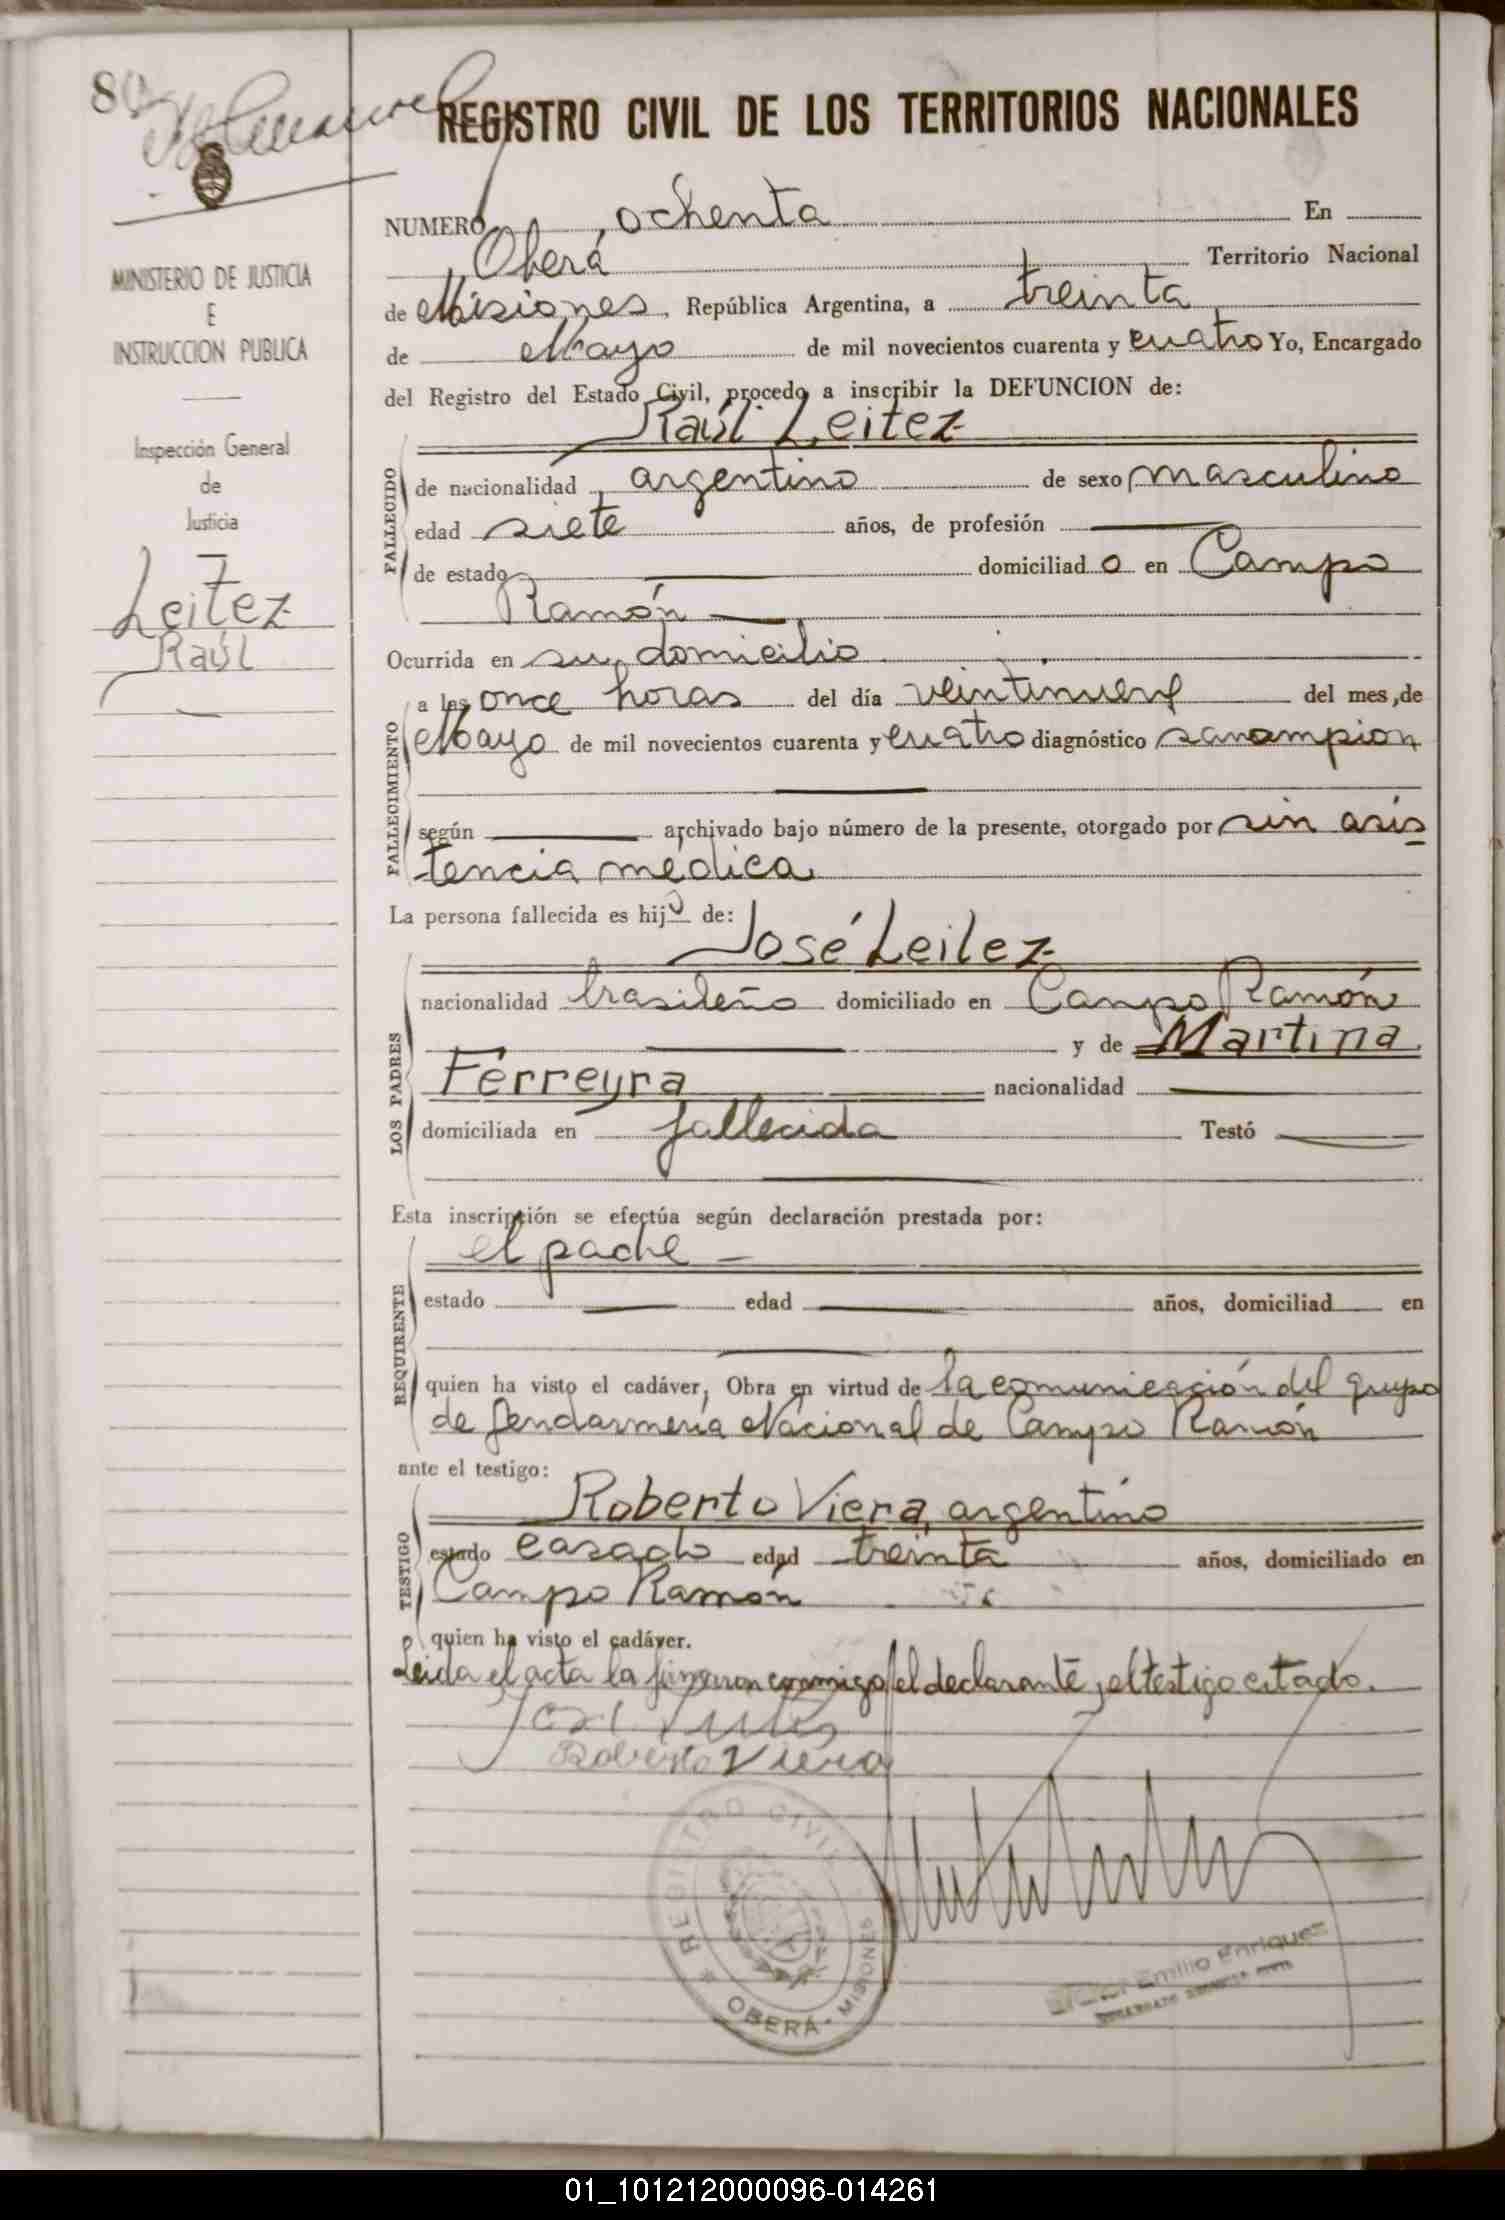 80
REGISTRO CIVIL DE LOS TERRITORIOS NACIONALES
MINISTERIO DE JUSTICIA
E
INSTRUCCION PUBLICA
Inspección General
de
Justicia
7
Leitez
Raúl
NUMERO, ochenta En
Oberá Territorio Nacional
de Misiones, República Argentina, a treinta
de Mayo de mil novecientos cuarenta y cuatro Yo, Encargado
del Registro del Estado Civil, procedo a inscribir la DEFUNCION de:
Raúl Leitez
FALLECIDO
de nacionalidad argentino de sexo masculino
edad siete años, de profesión
de estado domiciliado en Campo
Ramón
Ocurrida en su domicilio
FALLECIMIENTO
a las once horas del día veintinueve del mes de
Mayo de mil novecientos cuarenta y cuatro diagnóstico sarampion
según archivado bajo número de la presente, otorgado por sin asis
tencia medica
La persona fallecida es hijo de:
LOS PADRES
José Leitez
nacionalidad brasileño domiciliado en Campo Ramón
y de Martina
Ferreyra nacionalidad
domiciliada en fallecida Testó
Esta inscripción se efectúa según declaración prestada por:
REQUIRENTE
el padre
estado edad años, domiciliad en
quien ha visto el cadáver, Obra en virtud de la comunicación del grupo
de Gendarmería Nacional de Campo Ramón
ante el testigo:
TESTIGO
Roberto Viera, argentino
estado casado edad treinta años, domiciliado en
Campo Ramón
quien ha visto el cadáver.
Leida el acta la firmaron conmigo el declarante y el testigo citado.
José Leites
Roberto Viera
REGISTRO CIVIL
OBERÁ - MISIONES
Emilio Enriquez
01_101212000096-014261